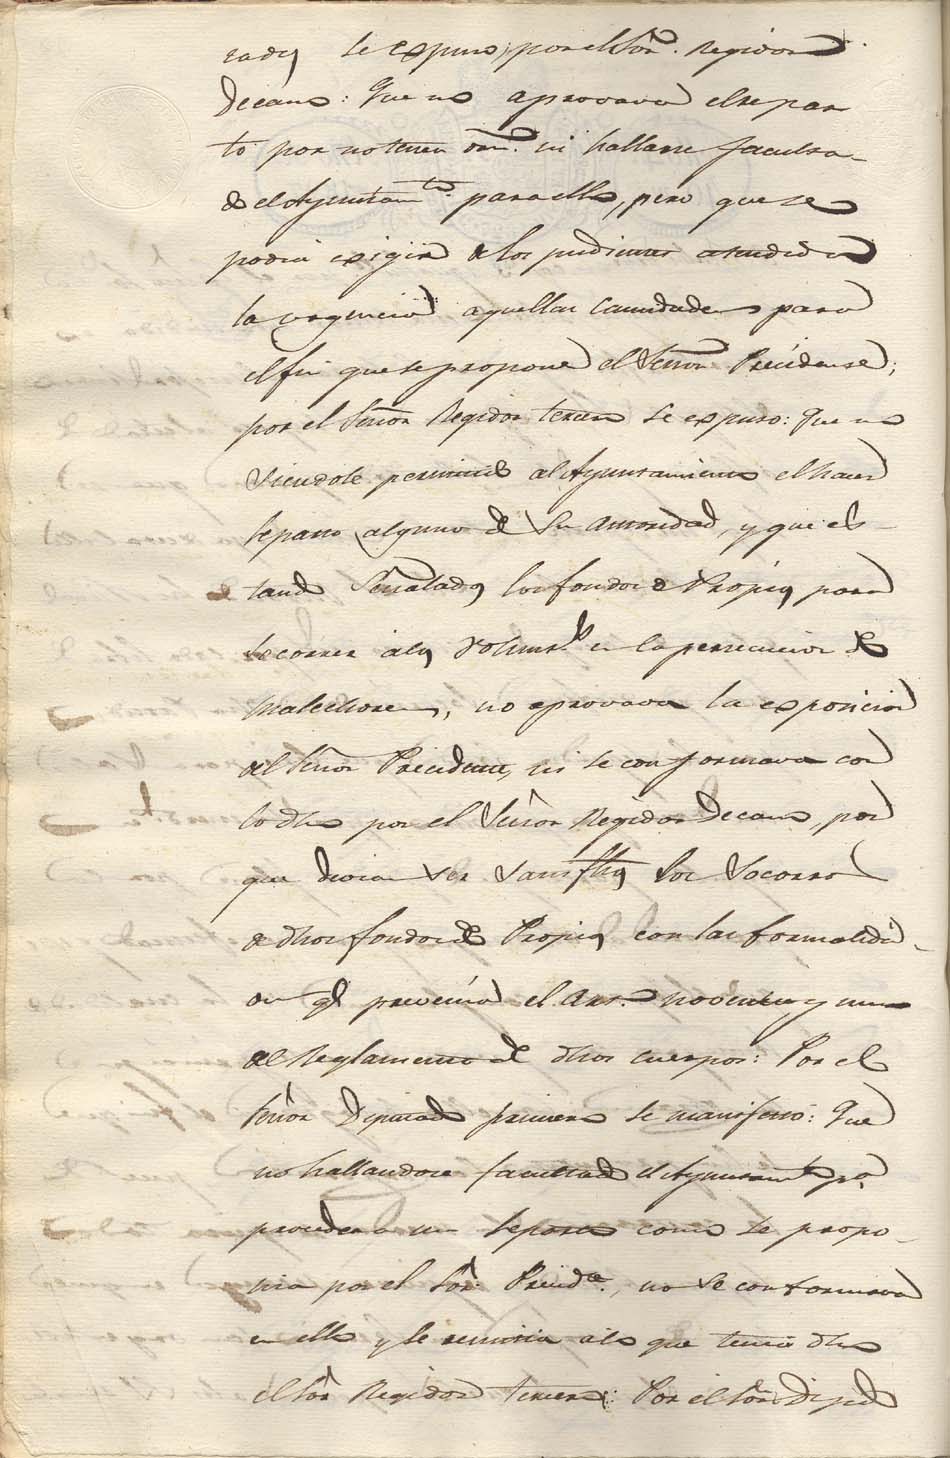 rados se expuso, por el Sôr. Regidor
Decano: Que no aprovava el repar
to por no tener orn. ni hallarse faculta-
do el Ayuntamto. para ello, pero que se
podia exigir de los pudientes atendida
la urgencia aquellas Cantidades para
el fin que se propone el Señor Presidente;
por el Señor Regidor tercero se expuso: Que no
siendole permitido al Ayuntamiento el hacer
reparto alguno de su autoridad, y que es-
tando Señalados los fondos de Propios para
socorrer a los Volunts. en la persecucion de
malechores, no aprovava la exposicion
del Señor Presidente, ni se conformava con
lo dho por el Señor Regidor Decano, por
que devian ser satisfhos los Socorros
de dhos fondos de Propios con las formalida-
des qe prevenia el Art. noventa y uno
del Reglamento de dhos cuerpos: Por el
Señor Diputado primero se manifesto: Que
no hallandose facultado el Ayuntamto pa.
proceder a un reparto como se propo-
nia por el Sôr. Presidte., no se conformava
en ello y se remitia a lo que tenia dho
el Sôr Regidor tercero: Por el Sôr Dipdo